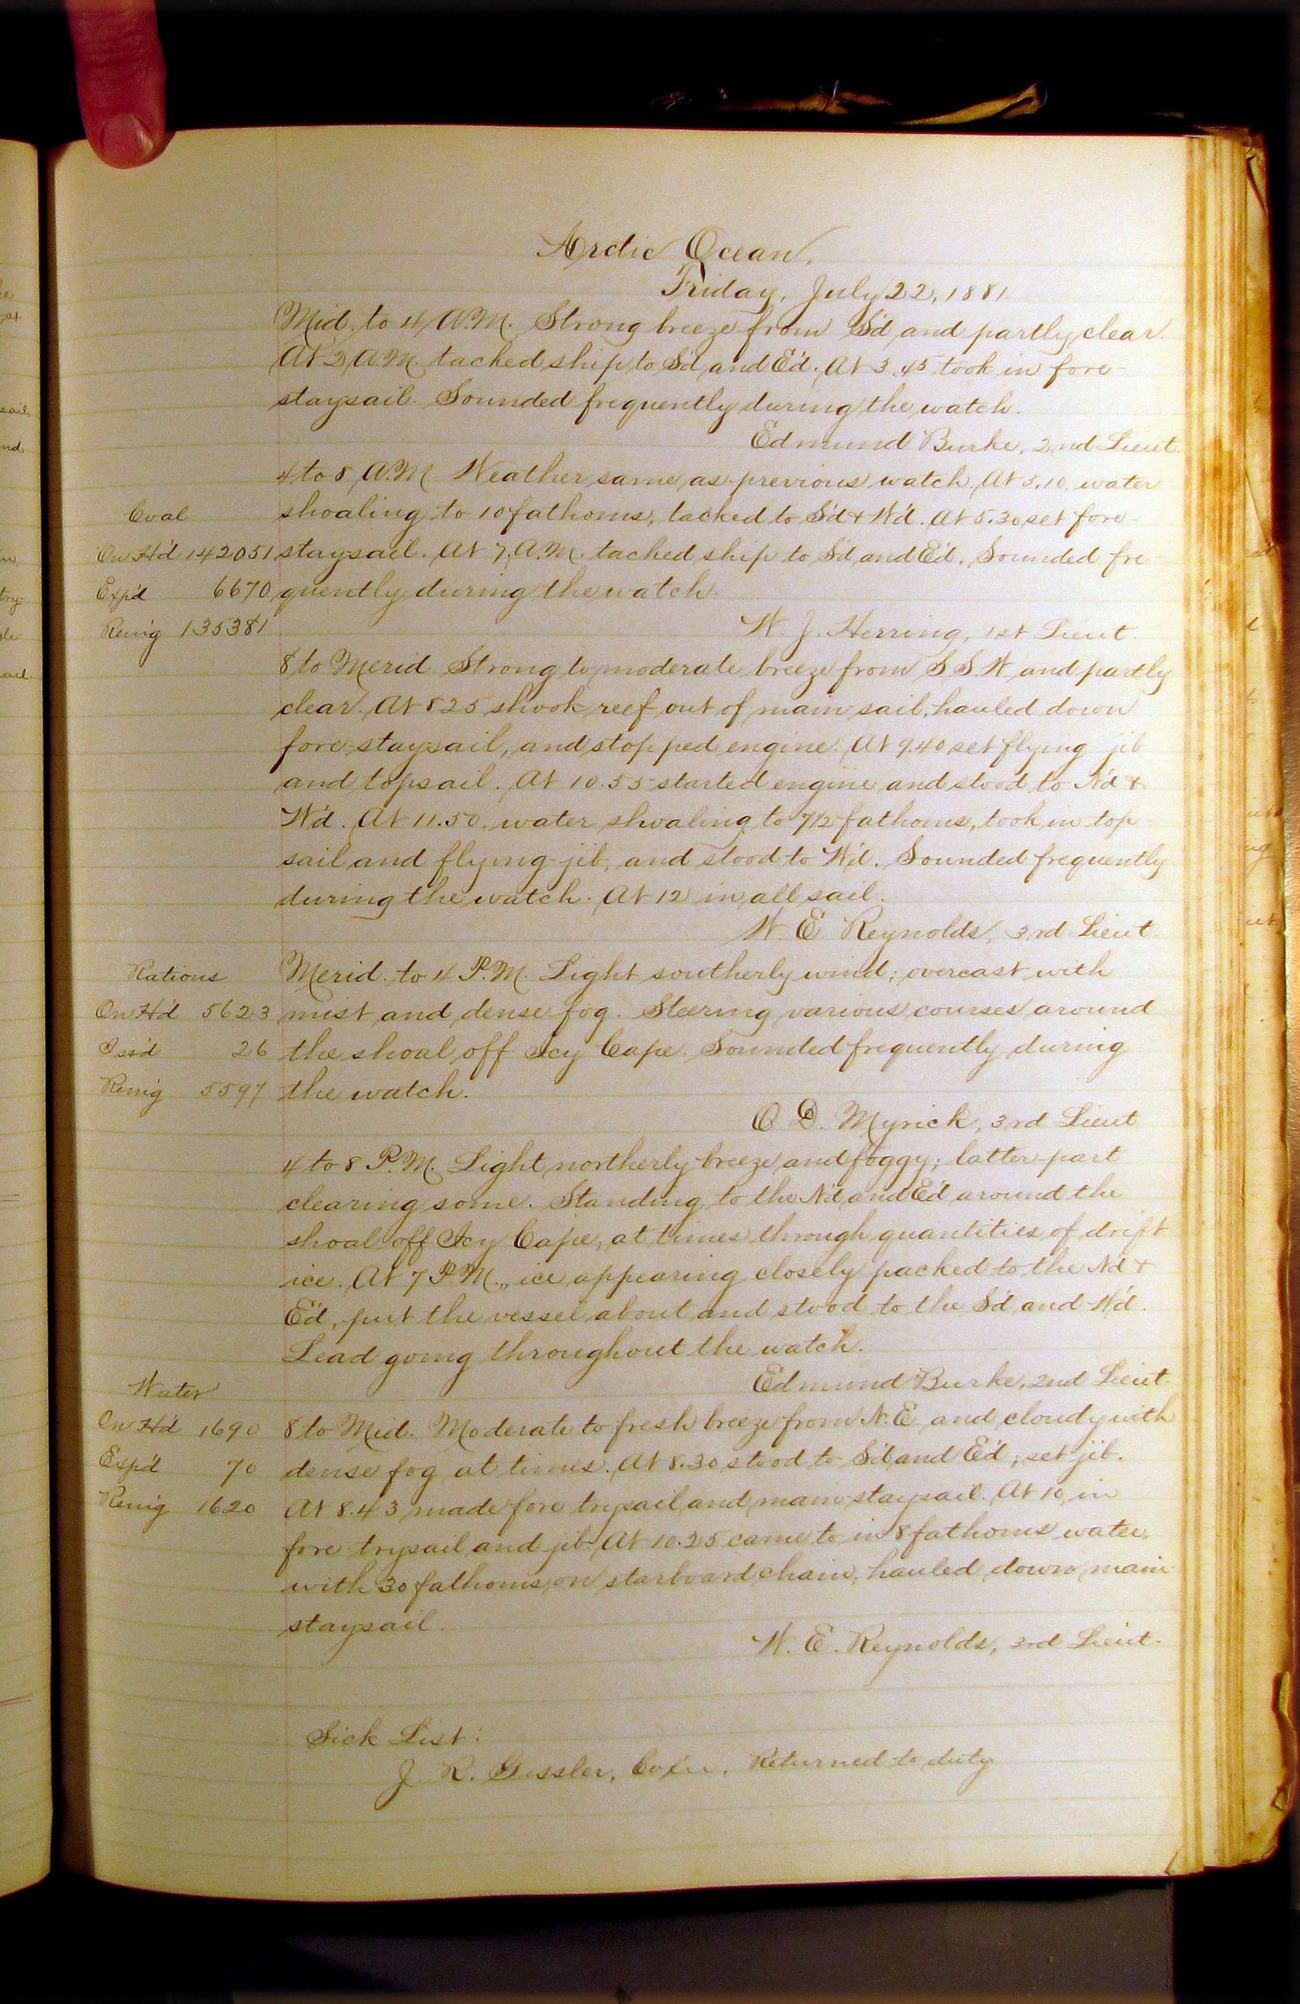 Arctic Ocean,
Friday, July 22, 1881.
Mid. to 4 A.M. Strong breeze from S'd and partly clear.
At 2 A.M. tacked ship to S'd and E'd. At 3.45 took in fore-
staysail. Sounded frequently during the watch.
Edmund Burke, 2nd Lieut.
4 to 8 A.M. Weather same as previous watch. At 5.10, water
Coal
shoaling to 10 fathoms, tacked to S'd & W'd. At 5.30 set fore-
On H'd 142051
staysail. At 7 A.M. tacked ship to S'd and E'd. Sounded fre-
Exp'd 6670
quently during the watch.
Rem'g 135381
W. J. Herring, 1st Lieut.
8 to Merid. Strong to moderate breeze from S.S.W. and partly
clear. At 8.25 shook reef out of main-sail, hauled down
fore-staysail, and stopped engine. At 9.40 set flying jib
and topsail. At 10.55 started engine and stood to N'd &
W'd. At 11.50, water shoaling to 7 1/2 fathoms, took in top-
sail and flying-jib, and stood to W'd. Sounded frequently
during the watch. At 12 in all sail.
W. E. Reynolds, 3rd Lieut.
Rations
Merid. to 4 P.M. Light southerly wind; overcast with
On H'd 5623
mist and dense fog. Steering various courses around
Iss'd 26
the shoal off Icy Cape. Sounded frequently during
Rem'g 5597
the watch.
O. D. Myrick, 3rd Lieut
4 to 8 P.M. Light northerly breeze and foggy; latter part
clearing some. Standing to the N'd and E'd around the
shoal off Icy Cape, at times through quantities of drift
ice. At 7 P.M., ice appearing closely packed to the N'd &
E'd, put the vessel about and stood to the S'd and W'd.
Lead going throughout the watch.
Edmund Burke, 2nd Lieut.
Water
On H'd 1690
8 to Mid. Moderate to fresh breeze from N.E. and cloudy with
Exp'd 70
dense fog at times. At 8.30 stood to S'd and E'd; set jib.
Rem'g 1620
At 8.43 made fore trysail and main-staysail. At 10, in
fore trysail and jib. At 10.25 came to in 8 fathoms water,
with 30 fathoms on starboard chain; hauled down main-
staysail.
W. E. Reynolds, 3rd Lieut.
Sick List:
J. R. Gessler, Cox'n. Returned to duty